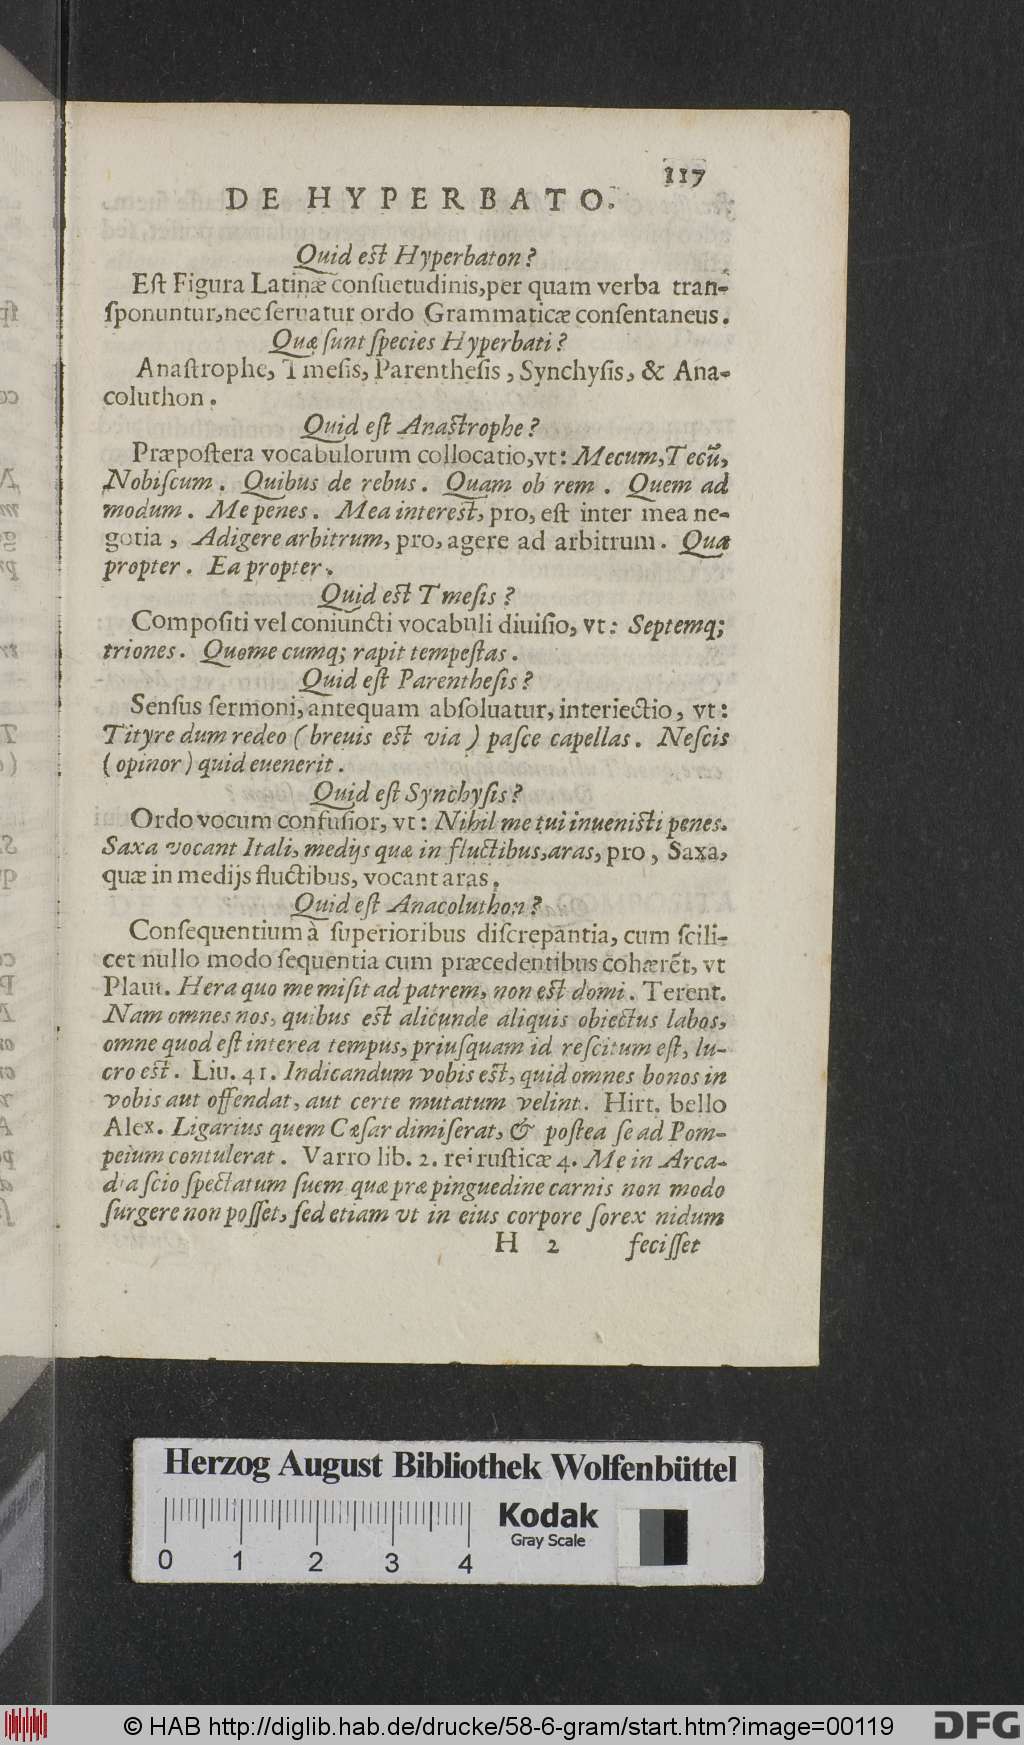 117
DE HYPERBATO.
Quid est Hyperbaton?
Eſt Figura Latinæ conſuetudinis, per quam verba tran-
ſponuntur, nec ſeruatur ordo Grammaticæ conſentaneus.
Quæ ſunt ſpecies Hyperbati?
Anaſtrophe, Tmeſis, Parentheſis, Synchyſis, & Ana-
coluthon.
Quid eſt Anastrophe?
Præpoſtera vocabulorum collocatio, vt: Mecum, Tecũ,
Nobiſcum. Quibus de rebus. Quam ob rem. Quem ad
modum. Me penes. Mea interest, pro, eſt inter mea ne-
gotia, Adigere arbitrum, pro, agere ad arbitrum. Qua
propter. Ea propter.
Quid est Tmeſis?
Compoſiti vel coniuncti vocabuli diuiſio, vt: Septemq;
triones. Quo me cumq; rapit tempeſtas.
Quid eſt Parentheſis?
Senſus ſermoni, antequam abſoluatur, interiectio, vt:
Tityre dum redeo (breuis est via) paſce capellas. Neſcis
(opinor) quid euenerit.
Quid eſt Synchyſis?
Ordo vocum confuſior, vt: Nihil me tui inuenisti penes.
Saxa vocant Itali, medijs quæ in fluctibus, aras, pro, Saxa,
quæ in medijs fluctibus, vocant aras.
Quid eſt Anacoluthon?
Conſequentium à ſuperioribus diſcrepantia, cum ſcili-
cet nullo modo ſequentia cum præcedentibus cohærẽt, vt
Plaut. Hera quo me miſit ad patrem, non est domi. Terent.
Nam omnes nos, quibus est alicunde aliquis obiectus labos,
omne quod eſt interea tempus, priuſquam id reſcitum eſt, lu-
cro est. Liu. 41. Indicandum vobis est, quid omnes bonos in
vobis aut offendat, aut certe mutatum velint. Hirt. bello
Alex. Ligarius quem Cæſar dimiſerat, & poſtea ſe ad Pom-
peium contulerat. Varro lib. 2. rei ruſticæ 4. Me in Arca-
dia ſcio ſpectatum ſuem quæ præ pinguedine carnis non modo
ſurgere non poſſet, ſed etiam vt in eius corpore ſorex nidum
H 2 feciſſet
Herzog August Bibliothek Wolfenbüttel
Kodak
Gray Scale
0 1 2 3 4
© HAB http://diglib.hab.de/drucke/58-6-gram/start.htm?image=00119
DFG